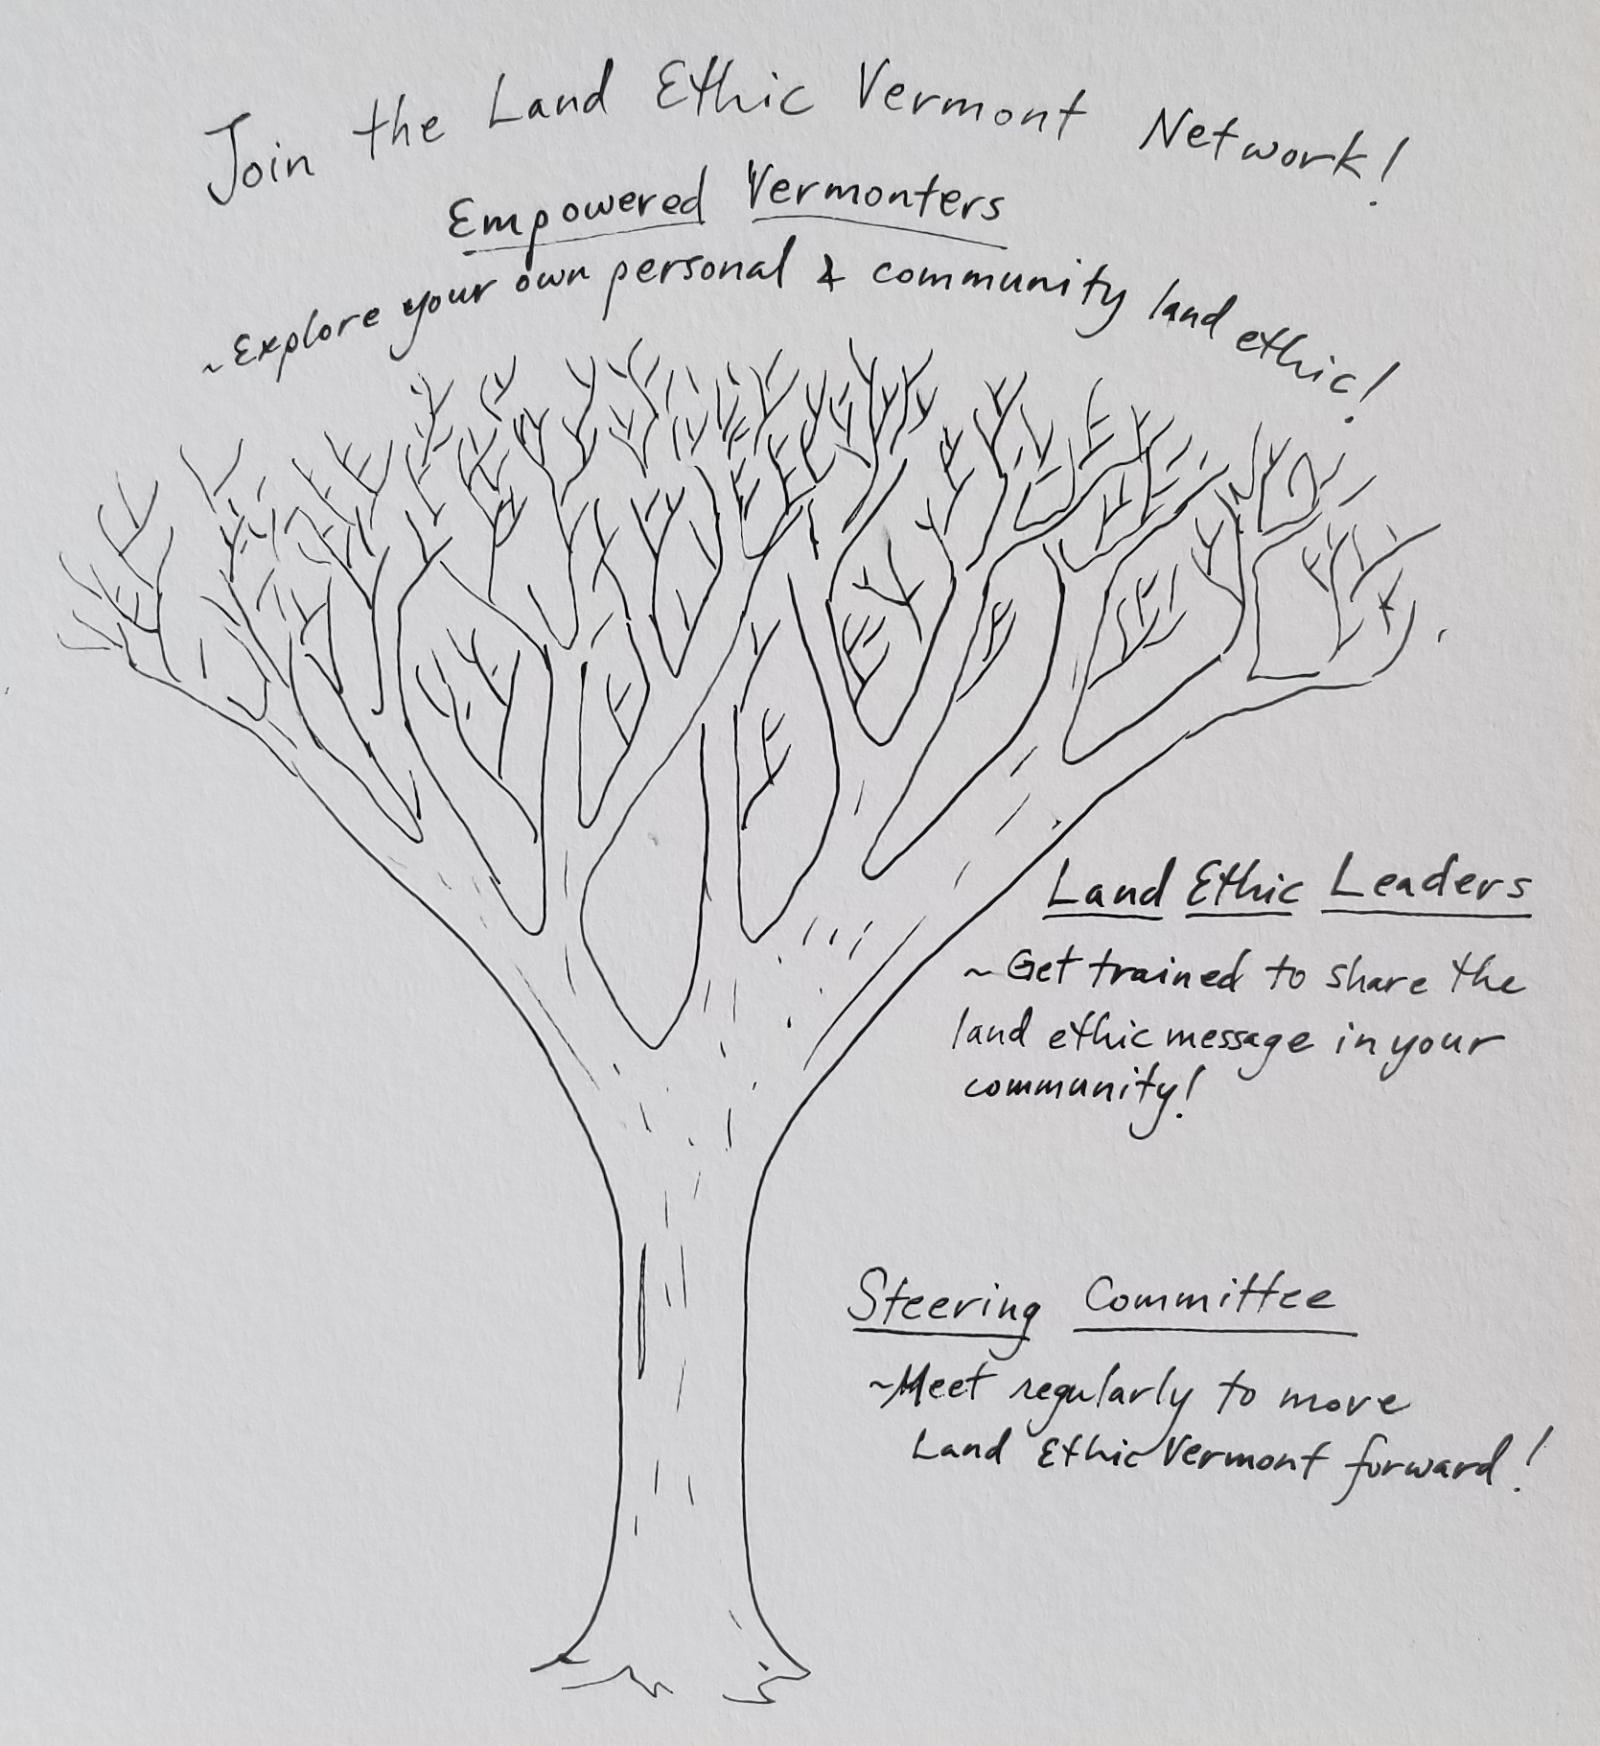 Join the Land Ethic Vermont Network!
Empowered Vermonters
~Explore your own personal & community land ethic!
Land Ethic Leaders
~Get trained to share the
land ethic message in your
community!
Steering Committee
~Meet regularly to move
Land Ethic Vermont forward!